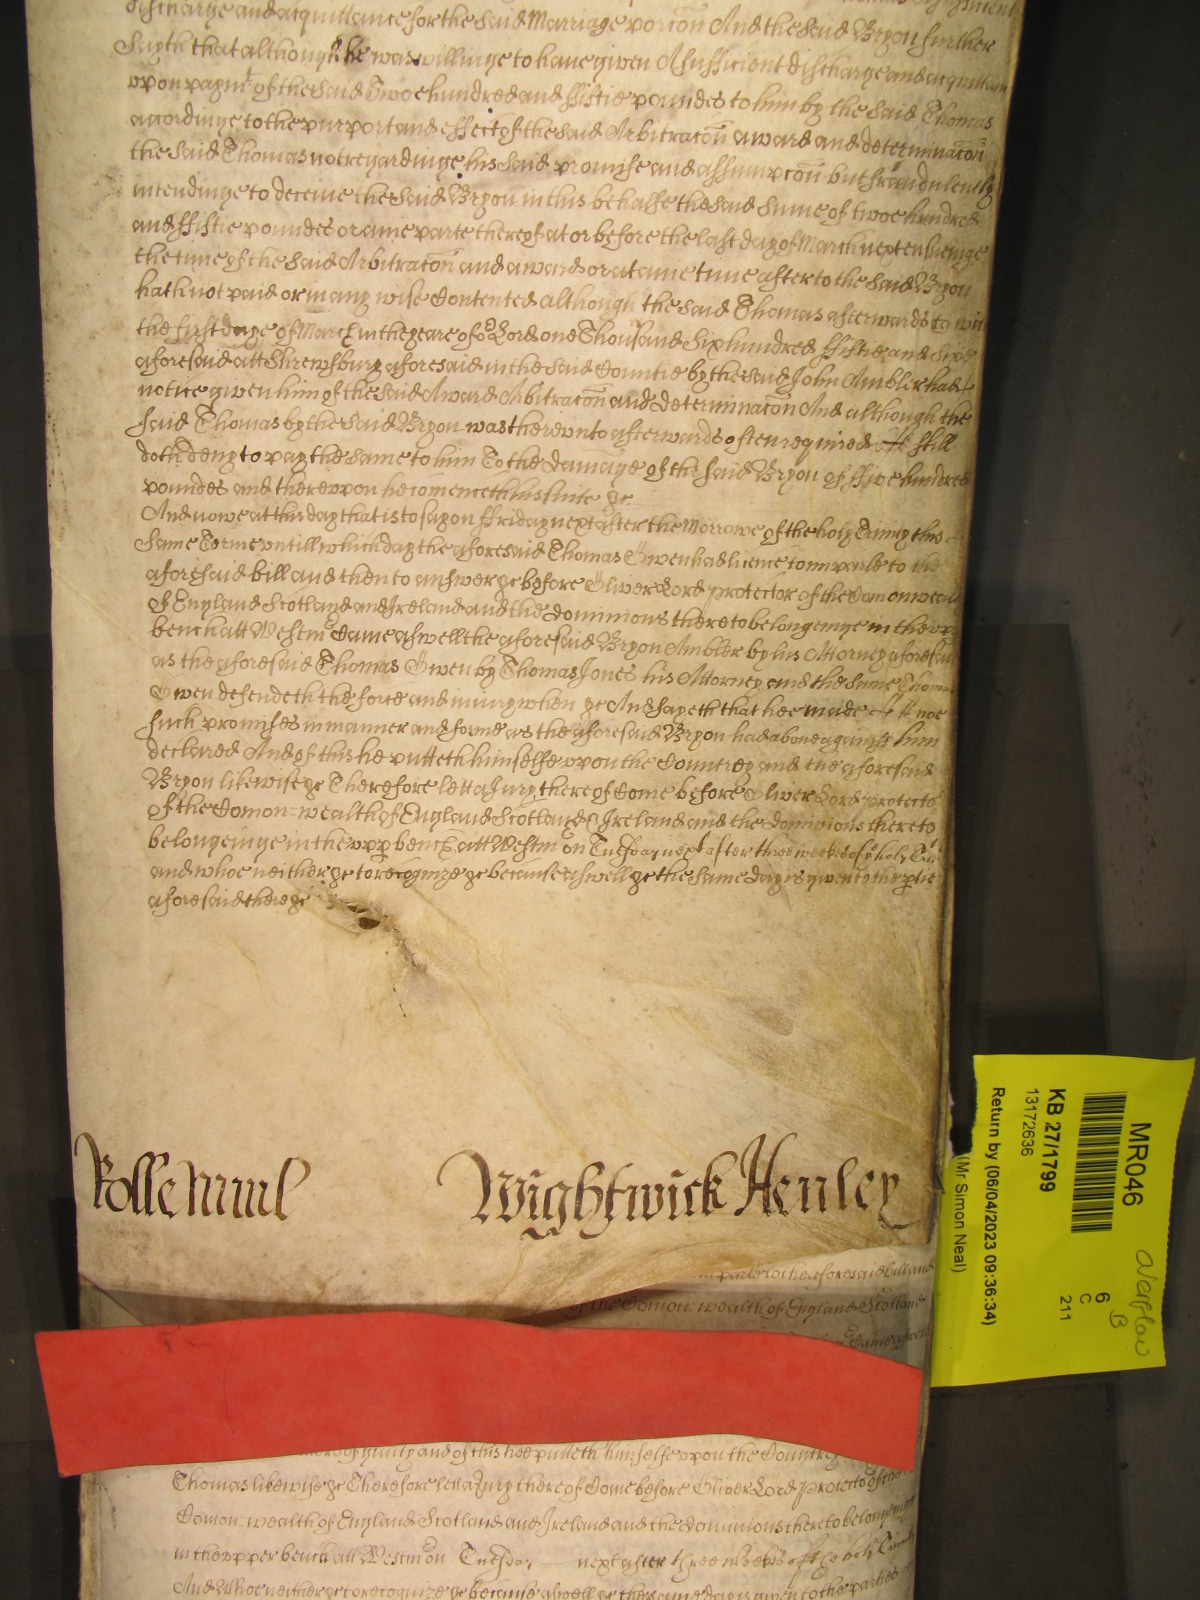 discharge and acquittance for the said Marriage porcōn And the said Bryon further
Sayth that although he was willinge to have given A sufficient discharge and acquittan
upon paymt of the said Twoe hundred and ffiftie poundes to him by the said Thomas
accordinge to the purport and effect of the said Arbitracōn award and determinacōn
the said Thomas not regardinge his said promise and assumpcōn but fraudulently
intendinge to deceive the said Bryon in this behalfe the said Sume of twoe hundred
and ffiftie poundes or anie parte thereof at or before the last day of March next ensueinge
the time of the said Arbitracōn and award or at anie time after to the said Bryon
hath not paid or in any wise Contented although the said Thomas afterwards to wit
the first daye of March in the yeare of or Lord one Thousand Six hundred ffiftie and Sixe
aforesaid att Shrewsbury aforesaid in the said Countie by the said John Ambler had
notice given him of the said Award Arbitracōn and determinacōn And although the
said Thomas by the said Bryon was thereunto afterwards often required He still
doth deny to pay the same to him To the damage of the said Bryon of ffive hundred
poundes and thereupon he comenceth his suite &c
And nowe at this day that is to say on ffriday next after the Morrowe of the holy Trinity this
same Terme untill which day the aforesaid Thomas Owen had licence to imparle to the
aforesaid bill and then to answer &c before Oliver Lord protector of the Comonweal
of England Scotland and Ireland and the dominions thereto belongeinge in the upp
bench att Westm Came aswell the aforesaid Bryon Ambler by his Attorney aforesaid
as the aforesaid Thomas Owen by Thomas Jones his Attorney and the same Thomas
Owen defendeth the force and iniury when &c And sayeth that hee made noe
such promises in manner and forme as the aforesaid Bryon had above against him
declared And of this he putteth himselfe upon the Countrey and the aforesaid
Bryon likewise &c Therefore lett a Jury thereof Come before Oliver Lord protecto
of the Comon-wealth of England Scotland & Ireland and the dominions thereto
belongeinge in the upp bench att Westm on Tuesday next after three weekes of ye holy Tri
and whoe neither &c to recognize &c because aswell &c the same day is given to the ptie
aforesaid there &c
Rolle Wightwick Henley
in parle to the aforesaid bill and
of the Comon-wealth of England Scotland
Came aswell
of guilty and of this hee putteth himselfe upon the Countrey
Thomas likewise &c Therefore lett a Jury thereof Come before Oliver Lord protector of the
Comon-wealth of England Scotland and Ireland and the dominions thereto belongeinge
in the upper bench att Westm on Tuesday next after three weekes of the holy Trinity
And Whoe neither &c to recognize &c because aswell &c the same day is given to the parties
MR046
KB 27/1799
13172636
Return by (06/04/2023 09:36:34)
(Mr Simon Neal)
6
C
211
Overflow
B